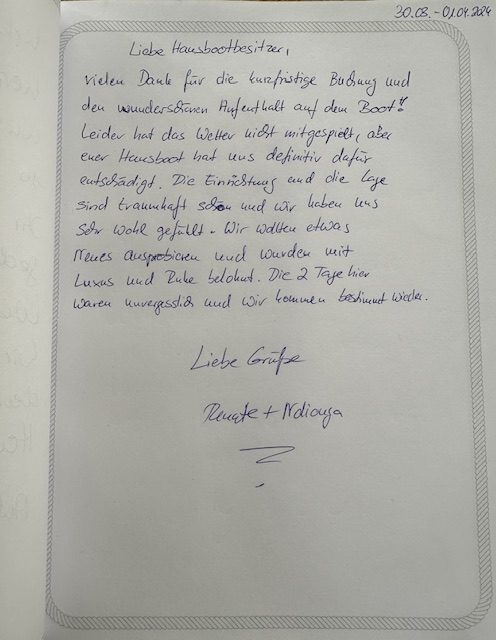 30.08.-01.09.2024
Liebe Hausbootbesitzer,
vielen Dank für die kurzfristige Buchung und
den wunderschönen Aufenthalt auf dem Boot!!
Leider hat das Wetter nicht mitgespielt, aber
euer Hausboot hat uns definitiv dafür
entschädigt. Die Einrichtung und die Lage
sind traumhaft schön und wir haben uns
sehr wohl gefühlt. Wir wollten etwas
Neues ausprobieren und wurden mit
Luxus und Ruhe belohnt. Die 2 Tage hier
waren unvergesslich und wir kommen bestimmt wieder.
Liebe Grüße
Renate +